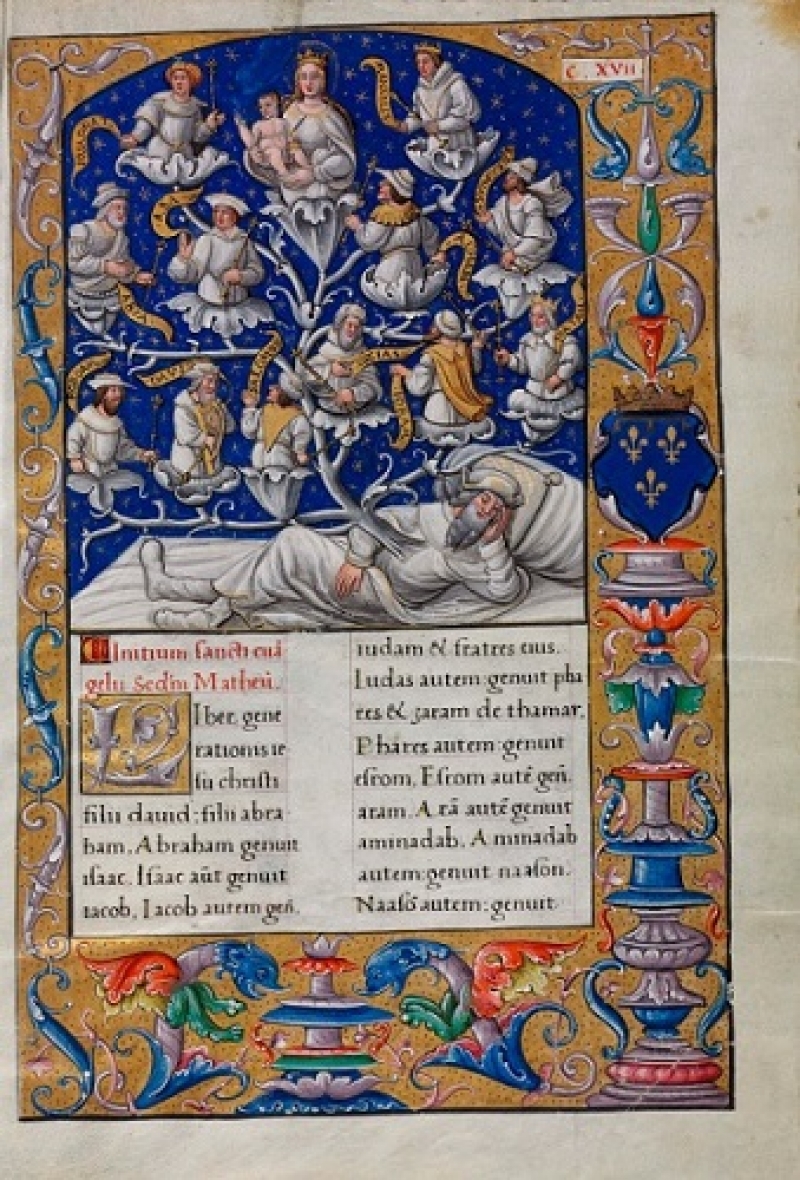 C. XVII
Initium sancti euā
gelii Sedīn Matheū.
Liber gene
rationis ie
su christi
filii dauid; filii abra
bam, Abraham genuit
isaac. Isaac aūt genuit
iacob, Iacob autem geñ.
iudam & fratres eius.
Iudas autem: genuit pha
res & zaram de thamar,
Phares autem: genuit
esrom, Esrom autē geñ.
aram. Arā autē genuit
aminadab. Aminadab
autem: genuit naason.
Naasō autem: genuit